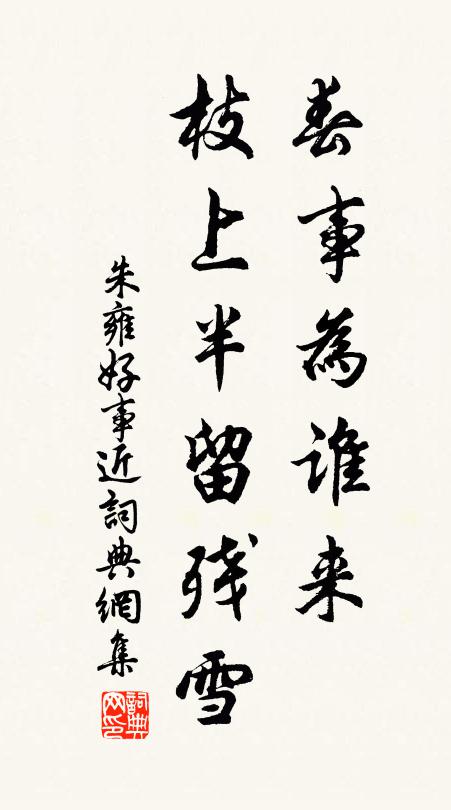 春事為誰来
枝上半留残雪
朱雍好事近詞典網集
詞典网印